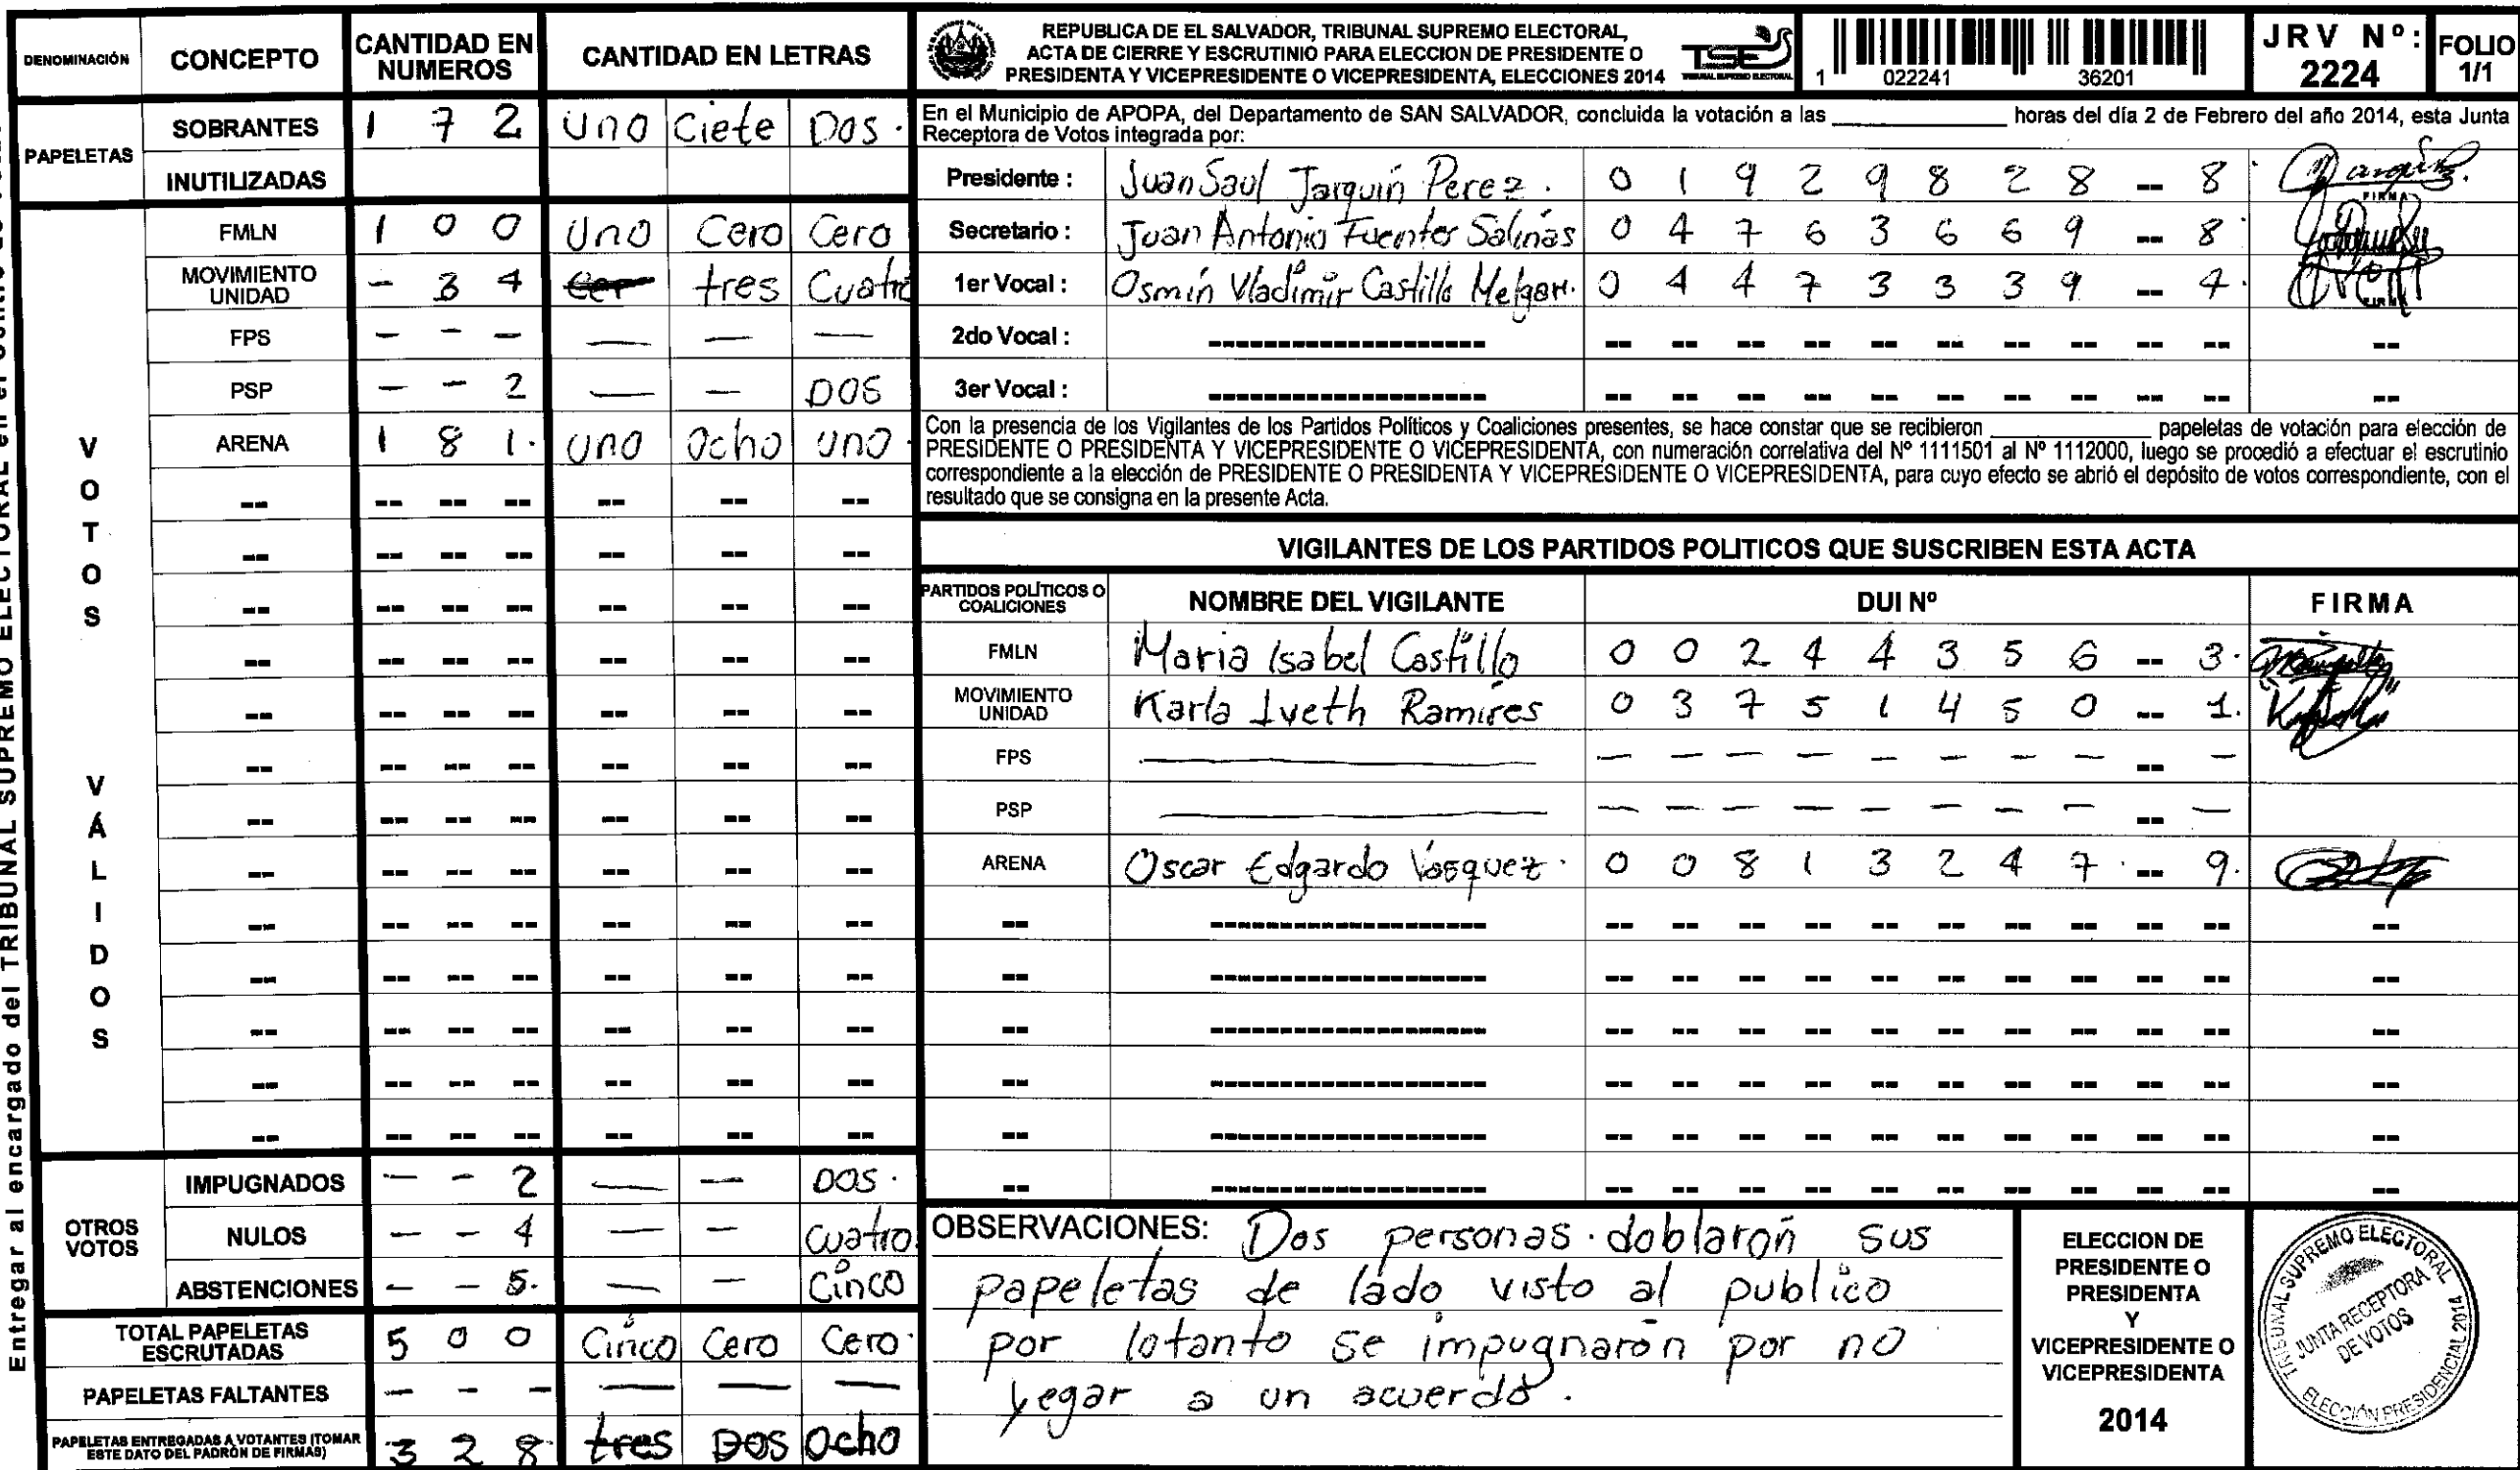 DENOMINACIÓN CONCEPTO CANTIDAD EN NUMEROS CANTIDAD EN LETRAS
PAPELETAS
SOBRANTES 1 7 2 Uno Ciete Dos.
INUTILIZADAS
VOTOS VÁLIDOS
FMLN 1 0 0 Uno Cero Cero
MOVIMIENTO UNIDAD - 3 4 Cer tres Cuatro
FPS - - - — — —
PSP - - 2 — — DOS
ARENA 1 8 1. uno Ocho uno.
-- -- -- -- -- -- --
-- -- -- -- -- -- --
-- -- -- -- -- -- --
-- -- -- -- -- -- --
-- -- -- -- -- -- --
-- -- -- -- -- -- --
-- -- -- -- -- -- --
-- -- -- -- -- -- --
-- -- -- -- -- -- --
-- -- -- -- -- -- --
-- -- -- -- -- -- --
-- -- -- -- -- -- --
-- -- -- -- -- -- --
OTROS VOTOS
IMPUGNADOS - - 2 — — DOS.
NULOS - - 4 — — Cuatro
ABSTENCIONES - - 5. — — Cinco
TOTAL PAPELETAS ESCRUTADAS 5 0 0 Cinco Cero Cero.
PAPELETAS FALTANTES - - - — — —
PAPELETAS ENTREGADAS A VOTANTES (TOMAR ESTE DATO DEL PADRÓN DE FIRMAS) 3 2 8 tres DOS Ocho
REPUBLICA DE EL SALVADOR, TRIBUNAL SUPREMO ELECTORAL,
ACTA DE CIERRE Y ESCRUTINIO PARA ELECCION DE PRESIDENTE O
PRESIDENTA Y VICEPRESIDENTE O VICEPRESIDENTA, ELECCIONES 2014
TSE
TRIBUNAL SUPREMO ELECTORAL
1 022241 36201
JRV Nº: 2224
FOLIO 1/1
En el Municipio de APOPA, del Departamento de SAN SALVADOR, concluida la votación a las ____________ horas del día 2 de Febrero del año 2014, esta Junta
Receptora de Votos integrada por:
Presidente : Juan Saul Jarquín Perez. 0 1 9 2 9 8 2 8 -- 8
FIRMA
Secretario : Juan Antonio Fuentes Salinas 0 4 7 6 3 6 6 9 -- 8
1er Vocal : Osmín Vladimir Castillo Melgar. 0 4 4 7 3 3 3 9 -- 4.
2do Vocal : -------------------- -- -- -- -- -- -- -- -- -- -- --
3er Vocal : -------------------- -- -- -- -- -- -- -- -- -- -- --
Con la presencia de los Vigilantes de los Partidos Políticos y Coaliciones presentes, se hace constar que se recibieron ____________ papeletas de votación para elección de
PRESIDENTE O PRESIDENTA Y VICEPRESIDENTE O VICEPRESIDENTA, con numeración correlativa del Nº 1111501 al Nº 1112000, luego se procedió a efectuar el escrutinio
correspondiente a la elección de PRESIDENTE O PRESIDENTA Y VICEPRESIDENTE O VICEPRESIDENTA, para cuyo efecto se abrió el depósito de votos correspondiente, con el
resultado que se consigna en la presente Acta.
VIGILANTES DE LOS PARTIDOS POLITICOS QUE SUSCRIBEN ESTA ACTA
PARTIDOS POLÍTICOS O COALICIONES NOMBRE DEL VIGILANTE DUI Nº FIRMA
FMLN Maria Isabel Castillo 0 0 2 4 4 3 5 6 -- 3.
MOVIMIENTO UNIDAD Karla Iveth Ramires 0 3 7 5 1 4 5 0 -- 1.
FPS — - - - - - - - - -- -
PSP — - - - - - - - - -- -
ARENA Oscar Edgardo Vasquez. 0 0 8 1 3 2 4 7 -- 9.
-- -------------------- -- -- -- -- -- -- -- -- -- -- --
-- -------------------- -- -- -- -- -- -- -- -- -- -- --
-- -------------------- -- -- -- -- -- -- -- -- -- -- --
-- -------------------- -- -- -- -- -- -- -- -- -- -- --
-- -------------------- -- -- -- -- -- -- -- -- -- -- --
-- -------------------- -- -- -- -- -- -- -- -- -- -- --
OBSERVACIONES: Dos personas. doblarón sus
papeletas de lado visto al publico
por lotanto se impugnarón por no
yegar a un acuerdo.
ELECCION DE
PRESIDENTE O
PRESIDENTA
Y
VICEPRESIDENTE O
VICEPRESIDENTA
2014
TRIBUNAL SUPREMO ELECTORAL
JUNTA RECEPTORA
DE VOTOS
ELECCIÓN PRESIDENCIAL 2014
Entregar al encargado del TRIBUNAL SUPREMO ELECTORAL en el